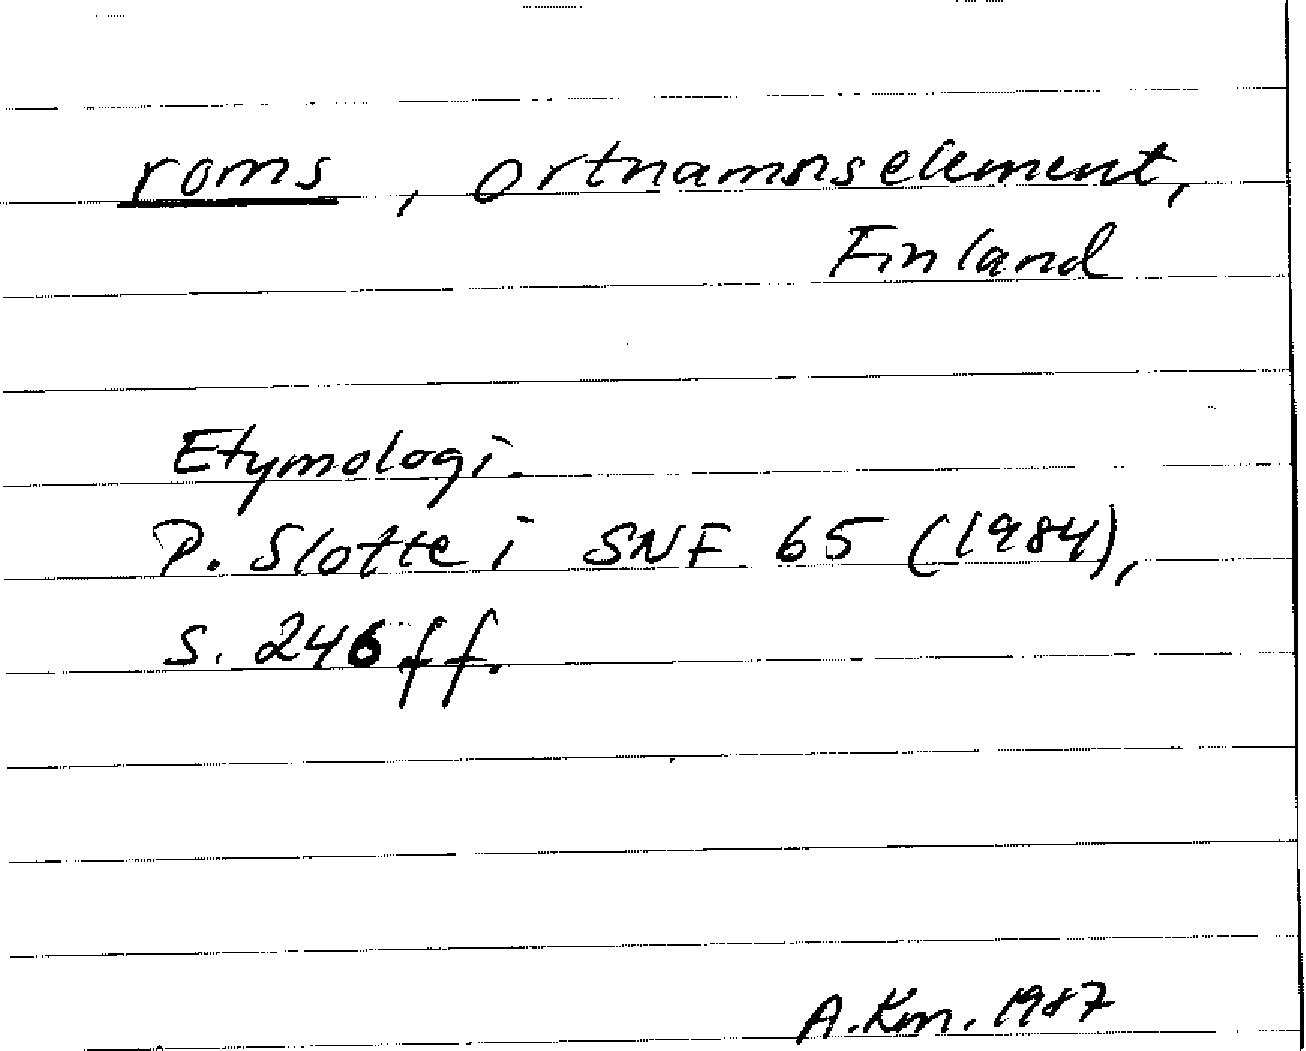 roms, ortnamnselement,
Finland
Etymologi.
P. Slotte i SNF 65 (1984),
s. 246 ff.
A. Km. 1987